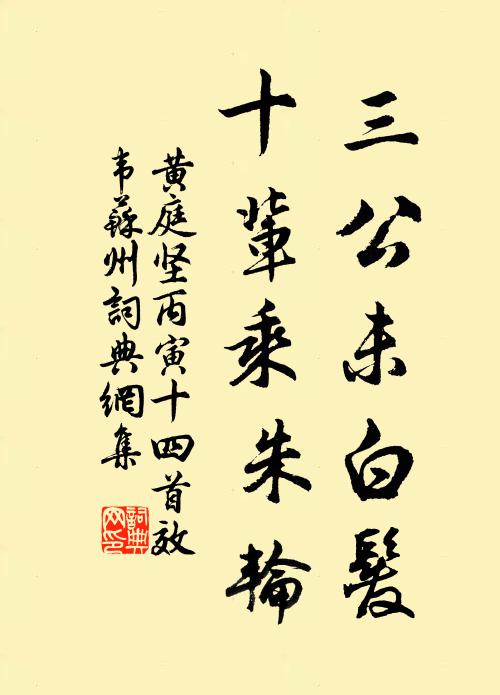 三公未白髮
十輩乘朱輪
黄庭坚丙寅十四首效
韦蘇州詞典網集
詞典网印